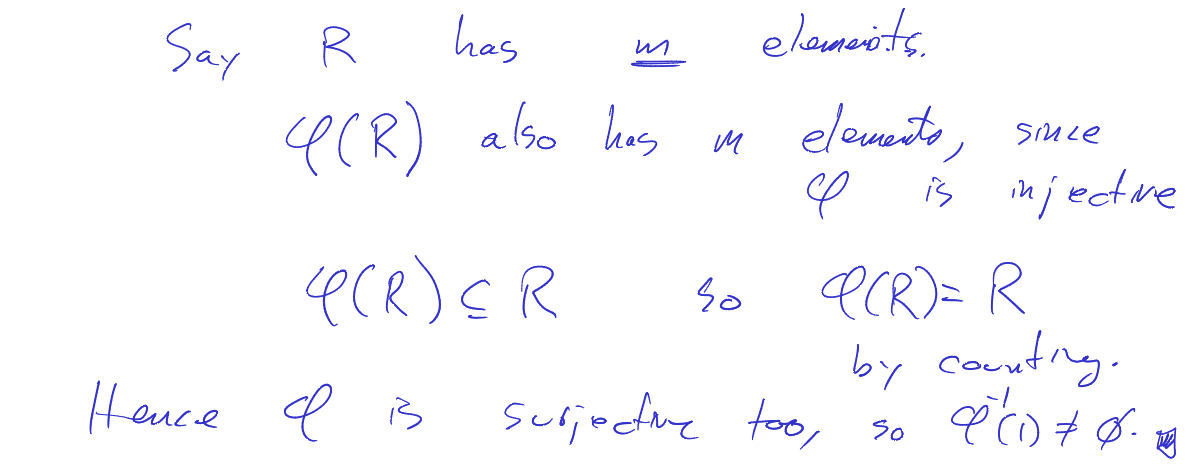 Say R has m elements.
φ(R) also has m elements, since
φ is injective
φ(R) ⊆ R so φ(R) = R
by counting.
Hence φ is surjective too, so φ⁻¹(1) ≠ ∅.